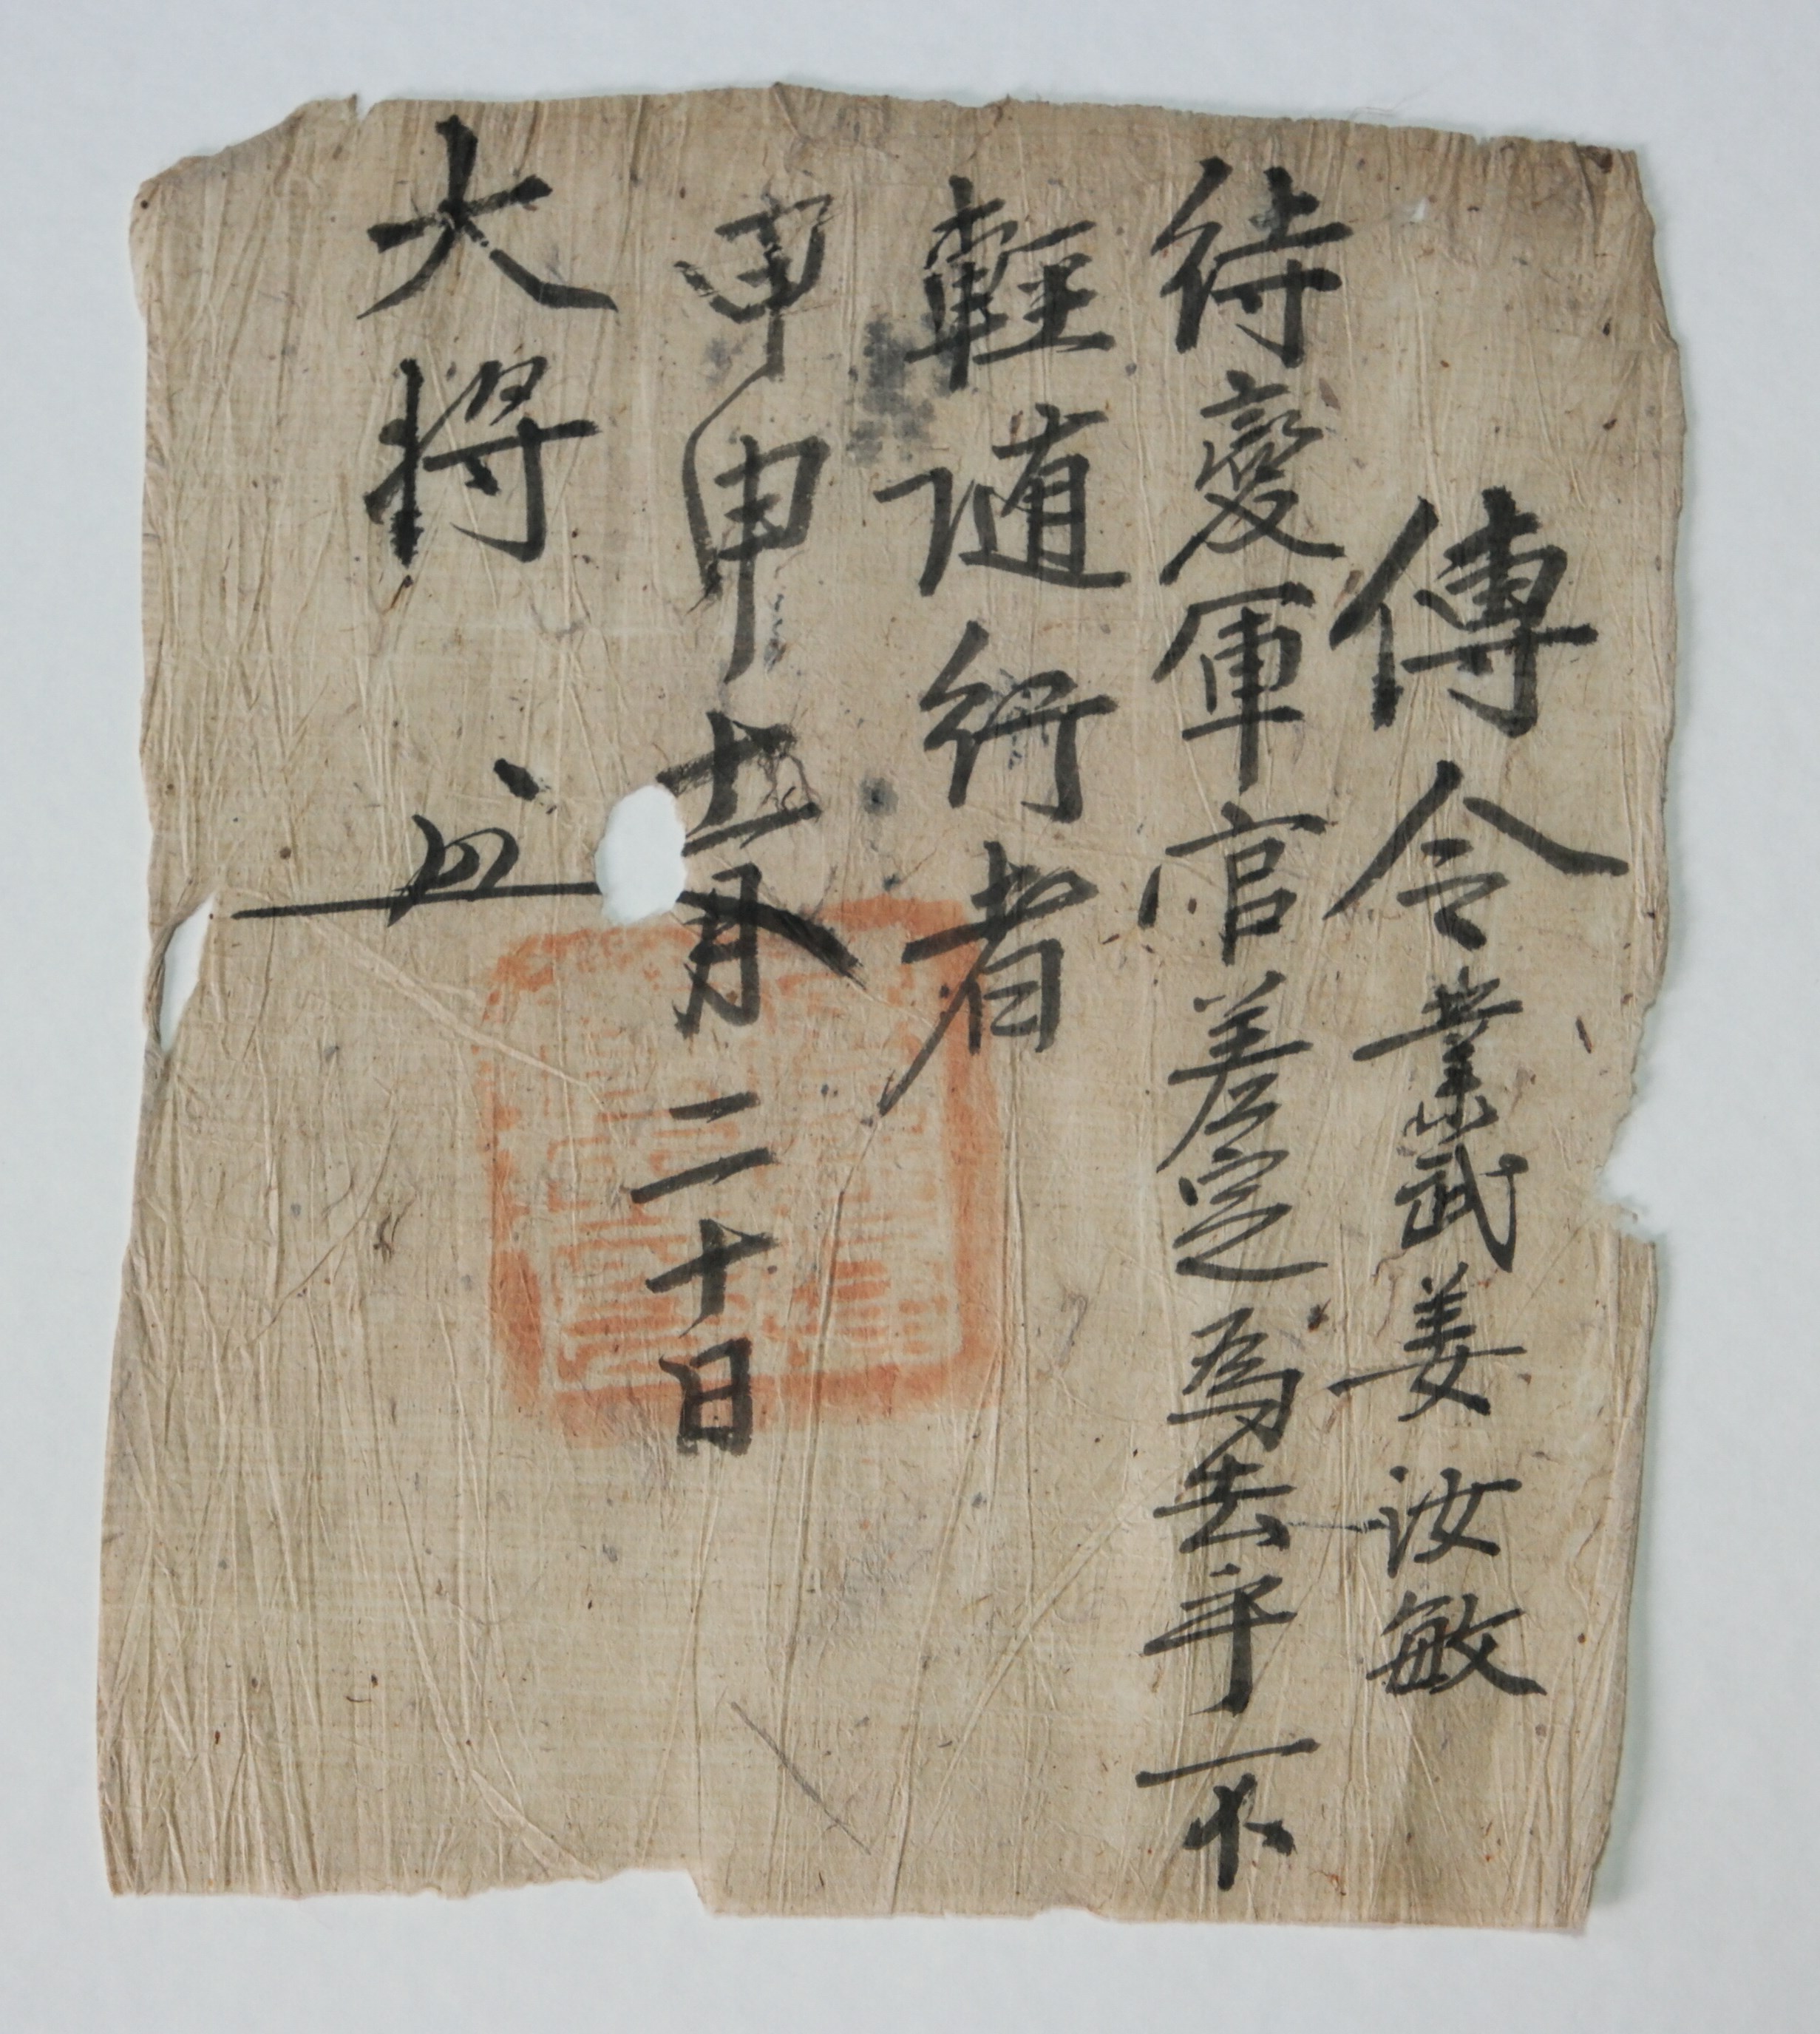 傳令業武姜汝敏
待變軍官差定爲去乎不
輕随行者
甲申十二月二十日
大將